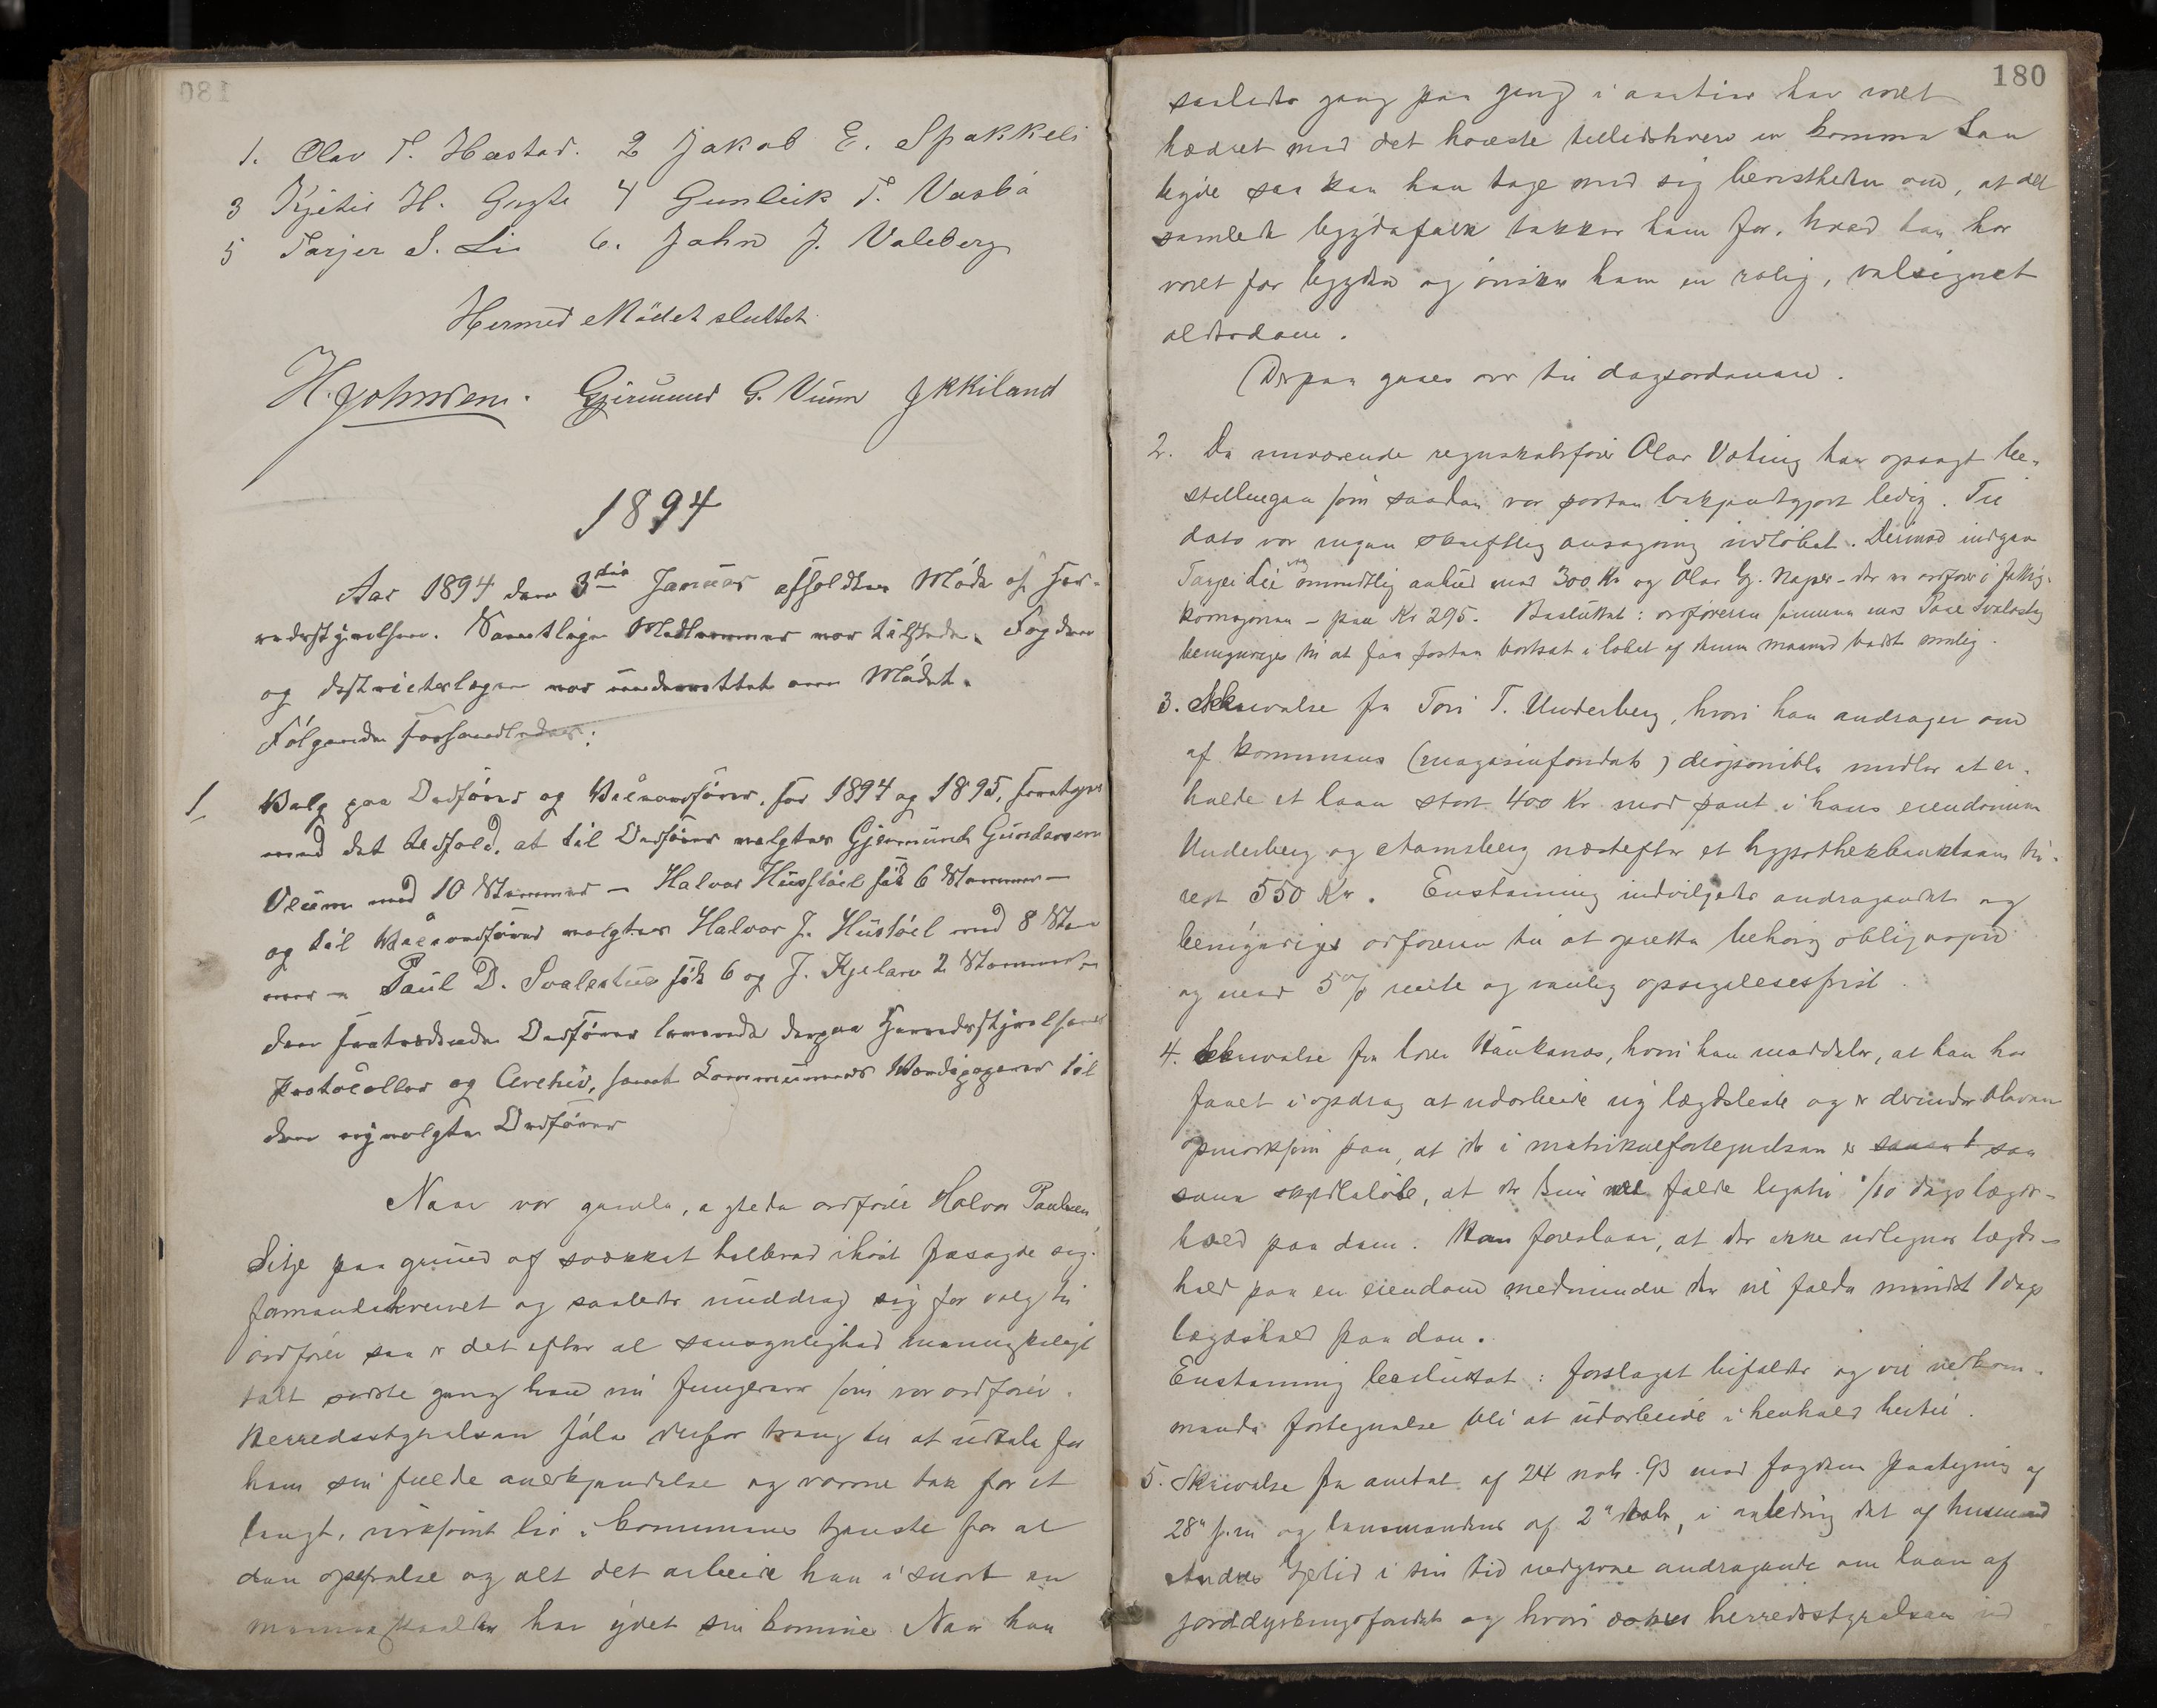 1. Olav T. Hastad. 2 Jakob E. Spokkeli
3 Kjetil H. Gugte 4 Gunleik T. Vasbö
5 Tarjer S. Lie 6. John J. Valeberg
Hermed Mödet sluttet
H. Johnsen. Gjermund G. Vium JKKiland
1894
Aar 1894 den 3die Januar afholdtes Möde af Her-
redsstyrelsen. Samtlige Medlemmer var tilstede. Fogden
og Distriktslægen var underrettet om Mödet.
Fölgende forhandledes:
1. Valg paa Ordförer og Viceordförer, for 1894 og 1895, foretoges
med det Udfald, at til Ordförer valgtes Gjermund Gundersen
Vium med 10 Stemmer – Halvor Hustöel fik 6 Stemmer –
og til Viceordförer valgtes Halvor J. Hustöel med 8 Stem
mer – Paul D. Svalestue fik 6 og J. Kjelarn 2 Stemmer.
Den fratrædende Ordförer leverede derpaa Herredsstyrelsens
Protocoller og Archiv, samt Communens Værdipapirer til
den nyvalgte Ordförer
Naar vor gamle, agtede ordförer Halvor Paulsen
Sitje paa grund af svækket helbred ihöst frasagde sig
formandshvervet og saaledes unddrog sig for valg til
ordförer saa er det efter al sansynlighed menneskeligt
talt sidste gang han nu fungerer som vor ordförer.
Herredsstyrelsen föler derfor trang til at udtale for
ham sin fulde anerkjendelse og varme tak for et
langt, virksomt liv i kommunens tjeneste for al
den opofrelse og alt det arbeide han i snart en
mannsalder har ydet sin komune. Naar han
180
saaledes gang paa gang i aartier har veret
hædret med det höieste tillidshverv en komune kan
byde saa kan han tage med sig bevistheden om, at det
samlede bygdefolk takker ham for, hvad han har
veret for bygden og önsker ham en rolig, velsignet
alderdom.
Derpaa gaaes over til dagsordenen.
2. Da nuværende regnskabsförer Olav Veting har opsagt be-
stillingen som saadan var posten bekjendtgjort ledig. Til
dato var ingen skriftlig ansögning indlöbet. Derimod indgav
Tarjei Lie mundtlig anbud med 300 Kr og Olav G. Naper – der er ordförer i fattig-
komisjonen – paa Kr 295. Besluttet: ordföreren sammen med Paul Svalestug
bemyndiges til at faa posten bortsat i löbet af denne maaned bedst mulig.
3. Skrivelse fra Tori T. Underberg, hvori han andrager om
af kommunens (magasinfondets) disponible midler at er-
holde et laan stort 400 Kr mod pant i hans eiendomme
Underberg og Aamsberg næstefter et hypothekbanklaan til-
rest 550 Kr. Enstemmig indvilgedes andragendet og
bemyndiges ordföreren til at oprette behörig obligasjon
og med 5 % rente og vanlig opsigelsesfrist.
4. Skrivelse fra lærer Haukenæs, hvori han meddeler, at han har
faaet i opdrag at udarbeide ny lægdsliste og er derunder bleven
opmerksom paa, at der i matrikuelfortegnelsen er saa
smaa skyldlöbe, at der kun vil falde ligetil 1/10 dags lægds-
hold paa dem. Han foreslaar, at der ikke udlignes lægds-
hold paa en eiendom medmindre der vil falde mindst 1 dags
lægdshold paa den.
Enstemmig besluttet: forslaget bifaldes og vil vedkom-
mende fortegnelse bli at udarbeide i henhold hertil.
5. Skrivelse fra amtet af 24 nov. 93 med fogdens paategning af
28" s.m og lensmandens af 2" decbr, i anledning det af husmand
Andres Gjelid i sin tid indgivne andragende om laan af
jorddyrkningsfondet og hvori herredsstyrelsen